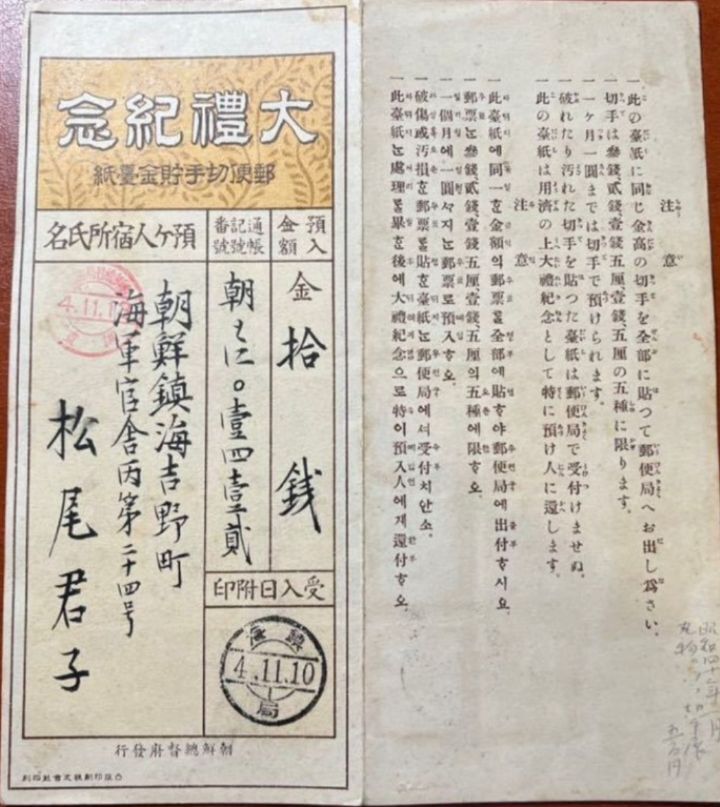 大禮紀念
郵便切手貯金臺紙
預入金額
金拾錢
通帳記號番號
預ケ人宿所氏名
朝鮮鎭海吉野町
海軍官舎丙第二十四号
松尾君子
受入日附印
鎭海
4.11.10
局
4.11.10
朝鮮總督府發行
注意
一 此の臺紙に同じ金高の切手を全部に貼つて郵便局へお出し爲さい。
一 切手は參錢、貳錢、壹錢五厘、壹錢、五厘の五種に限ります。
一 一ヶ月一圓までは切手で預けられます。
一 破れたり汚れた切手を貼つた臺紙は郵便局で受付けませぬ。
一 此の臺紙は用濟の上大禮紀念として特に預け人に還します。
注意
一 此臺紙에同一ᄒᆞᆫ金額의郵票를全部에貼ᄒᆞ야郵便局에出付ᄒᆞ시오
一 郵票는參錢、貳錢、壹錢五厘、壹錢、五厘의五種에限ᄒᆞ오。
一 一個月에一圓ᄭᆞ지는郵票로預入ᄒᆞ오。
一 破傷或汚損ᄒᆞᆫ郵票를貼ᄒᆞᆫ臺紙는郵便局에셔受付치안소。
一 此臺紙는處理를畢ᄒᆞᆫ後에大禮紀念으로特이預入人에게還付ᄒᆞ오。